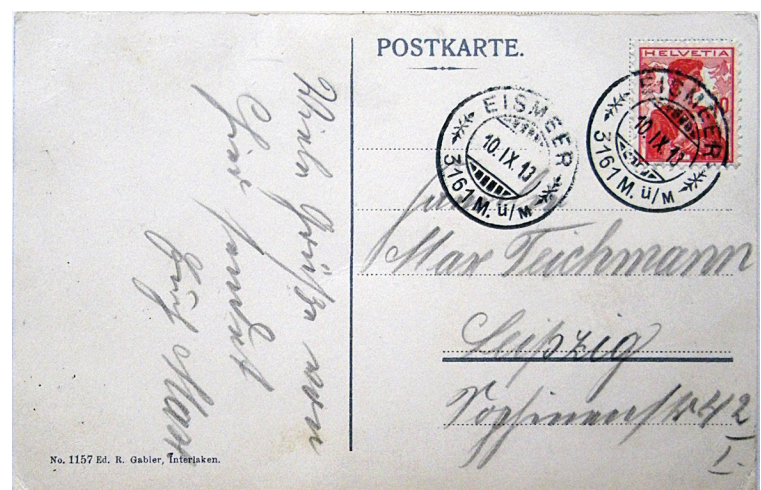 POSTKARTE.
HELVETIA
10
EISMEER
10.IX.13
3161 M. ü/M
EISMEER
10.IX.13
3161 M. ü/M
Familie
Max Teichmann
Leipzig
Sophienstr 42
I.
Viele Grüße von
hier sendet
Euch Max
No. 1157 Ed. R. Gabler, Interlaken.